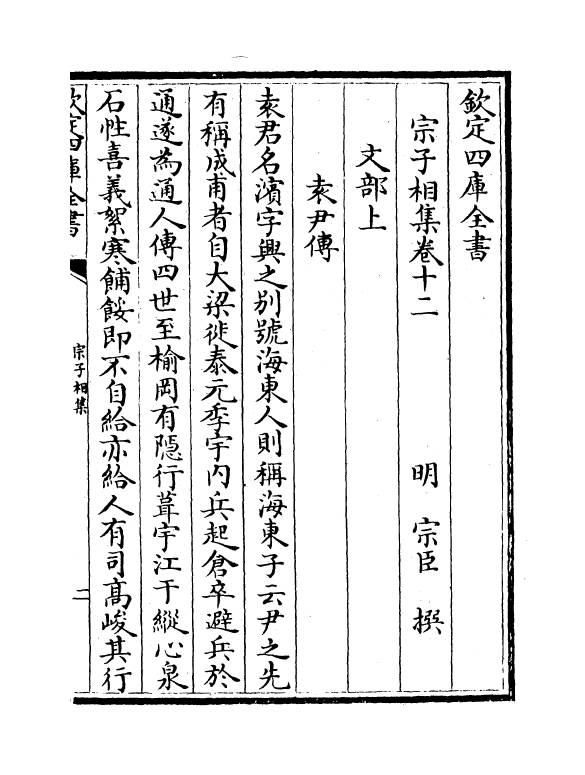 欽定四庫全書
宗子相集卷十二
明 宗臣 撰
文部上
袁尹傳
袁君名濱字興之别號海東人則稱海東子云尹之先
有稱成甫者自大梁徙泰元季宇内兵起倉卒避兵於
通遂為通人傳四世至榆岡有隠行葺宇江干縱心泉
石性喜義絮寒餔餒即不自給亦給人有司髙峻其行
欽定四庫全書
宗子相集
二